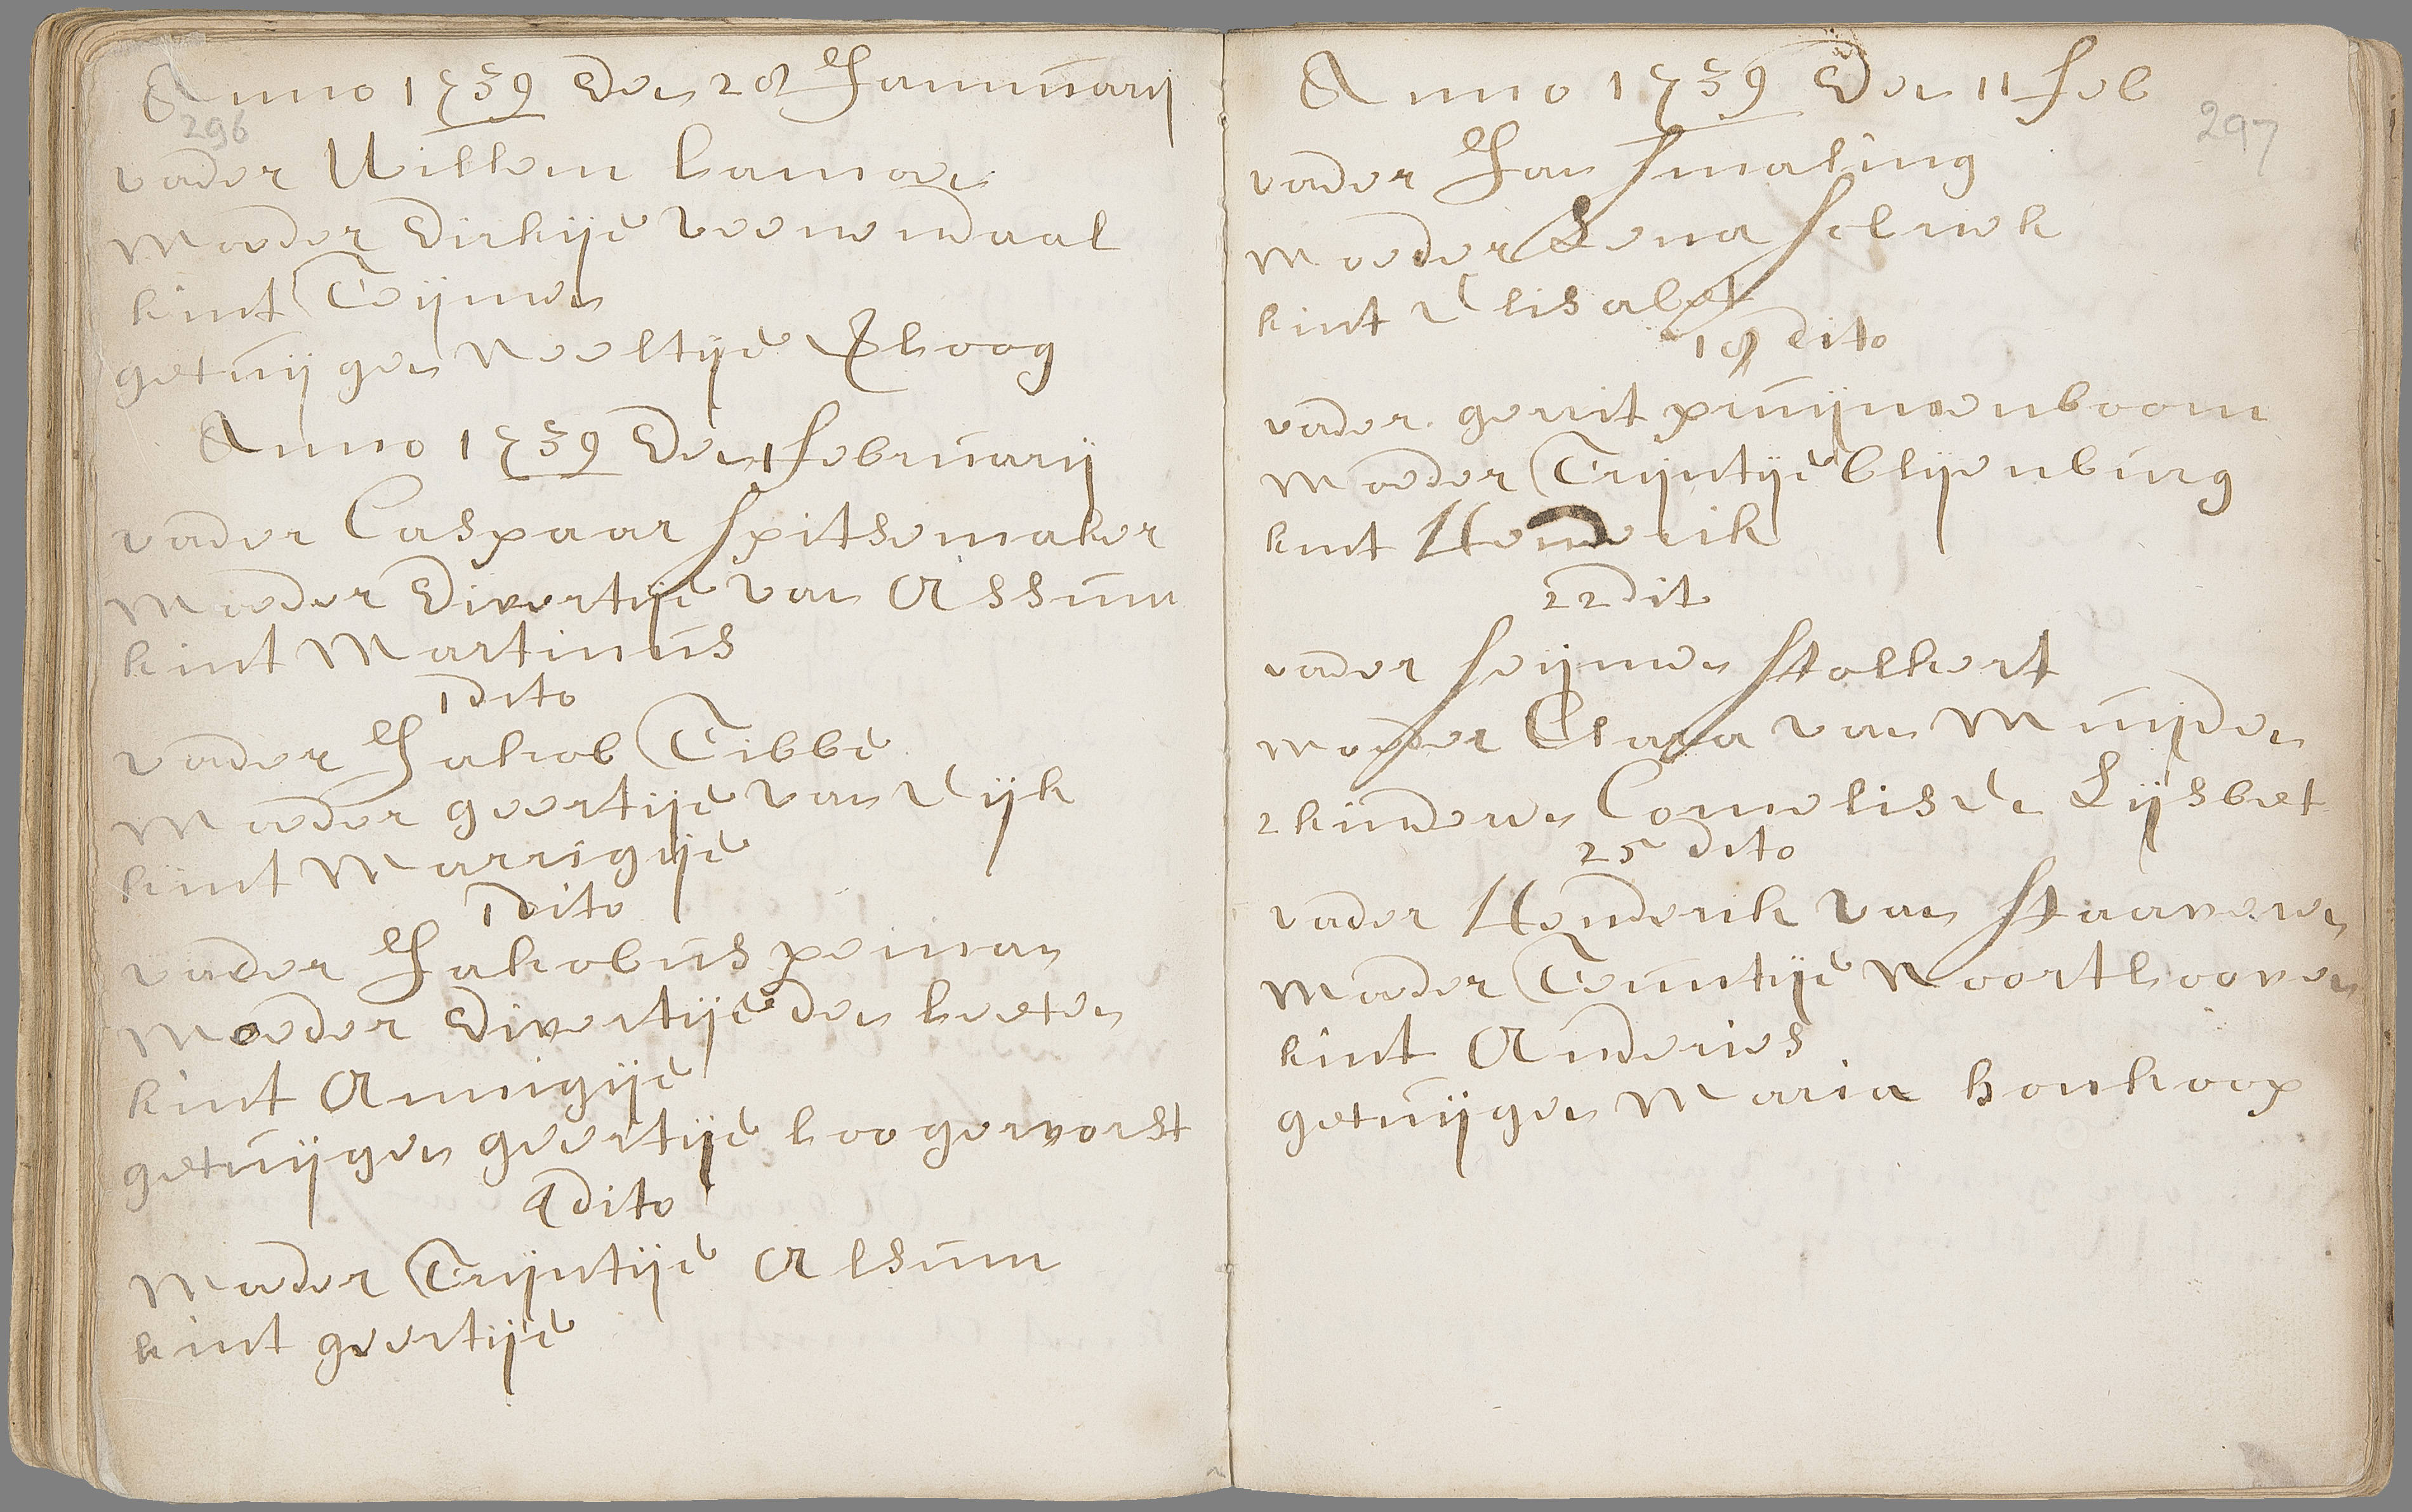 Anno 1739 Den 28 Jannuarij
296
vader Willem hamoen
Moeder Dirkije veenendaal
kint Teijmen
getuijgen Neeltije Ehoog
Anno 1739 Den 1 februarij
vader Caspaar Spitsemaker
Moeder Divertije van Assum
kint Martinus
1 dito
vader Jakob Tibbe
Moeder geertije van Eijk
kint Marrigije
1 dito
vader Jakobus peiman
Moeder Divertije den heeten
kint Annigije
getuijgen geertije hoogervorst
4 dito
Moeder Trijntije Alsum
kint geertije
Anno 1739 Den 11 feb
297
vader Jan Smaling
Moeder Lena Schrek
kint Elisabet
18 dito
vader gerrit pruijmenboom
Moeder Trijntije blijenburg
kint Henderik
22 dit
vader Seijmen Stolkert
Moeder Clara van Muijden
2 kinderen Cornelis En Lijsbet
25 dito
vader Henderik van Staaveren
Moeder Teuntije Noorthooven
kint Anderies
getuijgen Maria honkoop